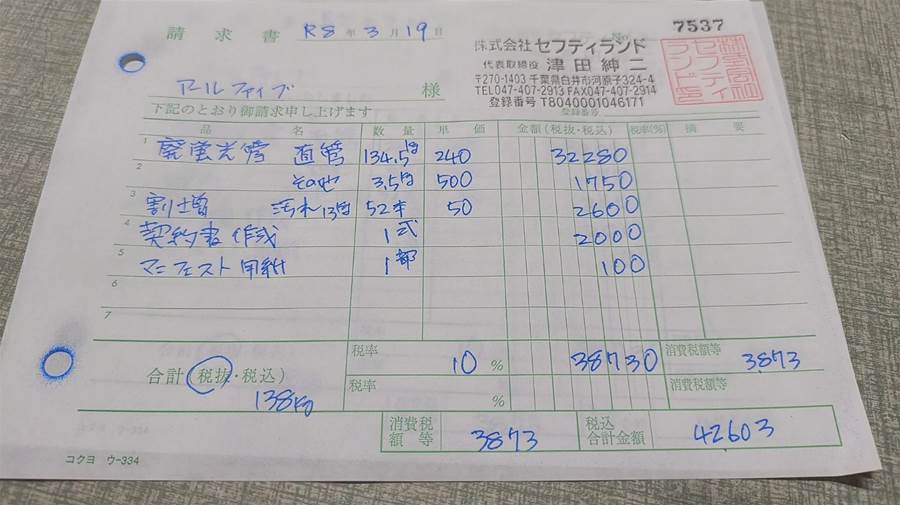 請求書 R8年3月19日
No. 7537
株式会社 セフティランド
代表取締役 津田紳二
〒270-1403 千葉県白井市河原子324-4
TEL047-407-2913 FAX047-407-2914
登録番号 T8040001046171
登録番号
アールファイブ 様
下記のとおり御請求申し上げます
品名 数量 単価 金額(税抜・税込) 税率(%) 摘要
1 廃蛍光管 直管 134.5kg 240 32280
2 その他 3.5kg 500 1750
3 割増 汚れ13kg 52本 50 2600
4 契約書作成 1式 2000
5 マニフェスト用紙 1部 100
6
7
合計(税抜・税込)
138kg
税率 10% 38730 消費税額等 3873
税率 % 消費税額等
消費税額等 3873 税込合計金額 42603
コクヨ ウ-334